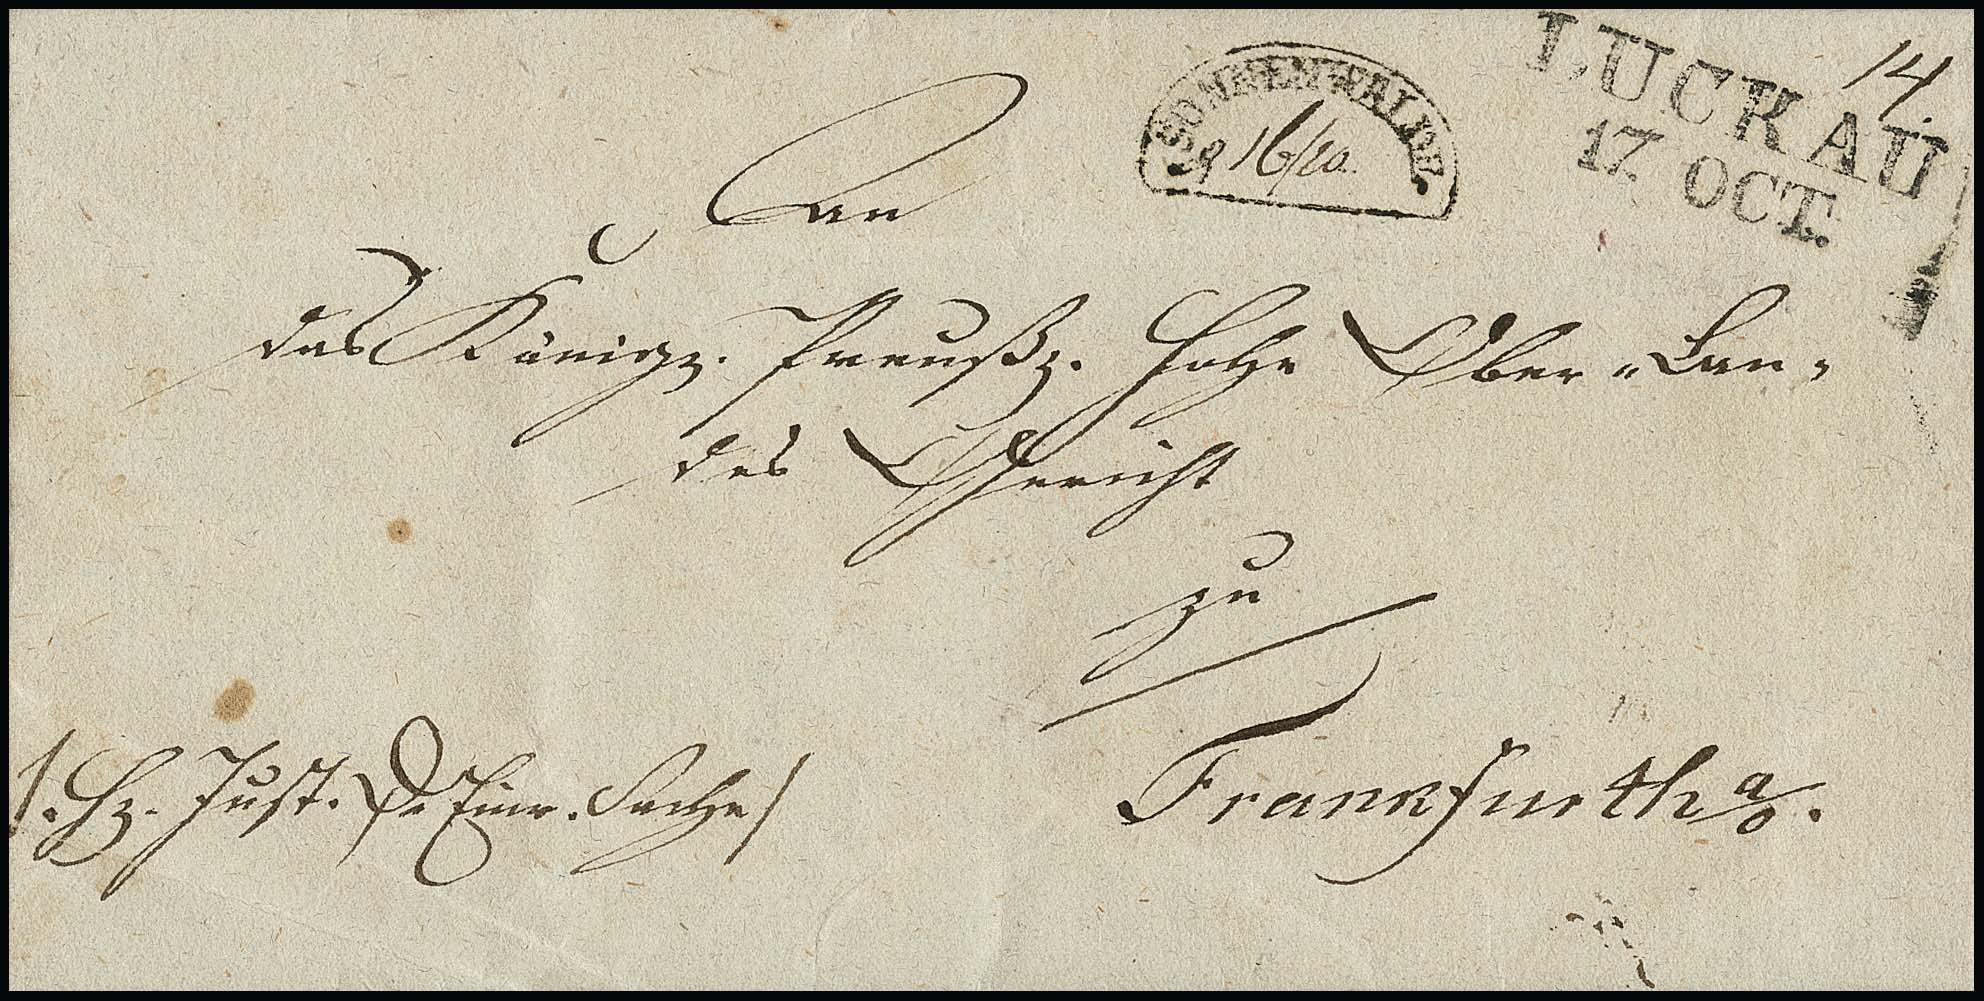 LUCKAU
17. OCT.
14.
SONNENWALDE.
16/10.
An
das Königl. Preußl. Hohe Ober-Lan-
des Gericht
zu
Frankfurth a/O.
Just. Sache